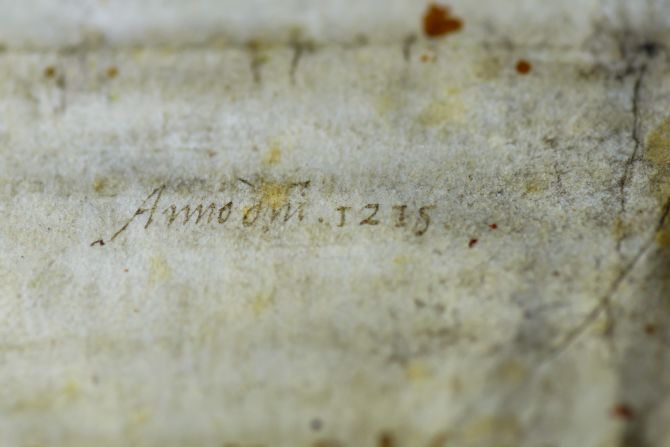 Anno dñi . 1215